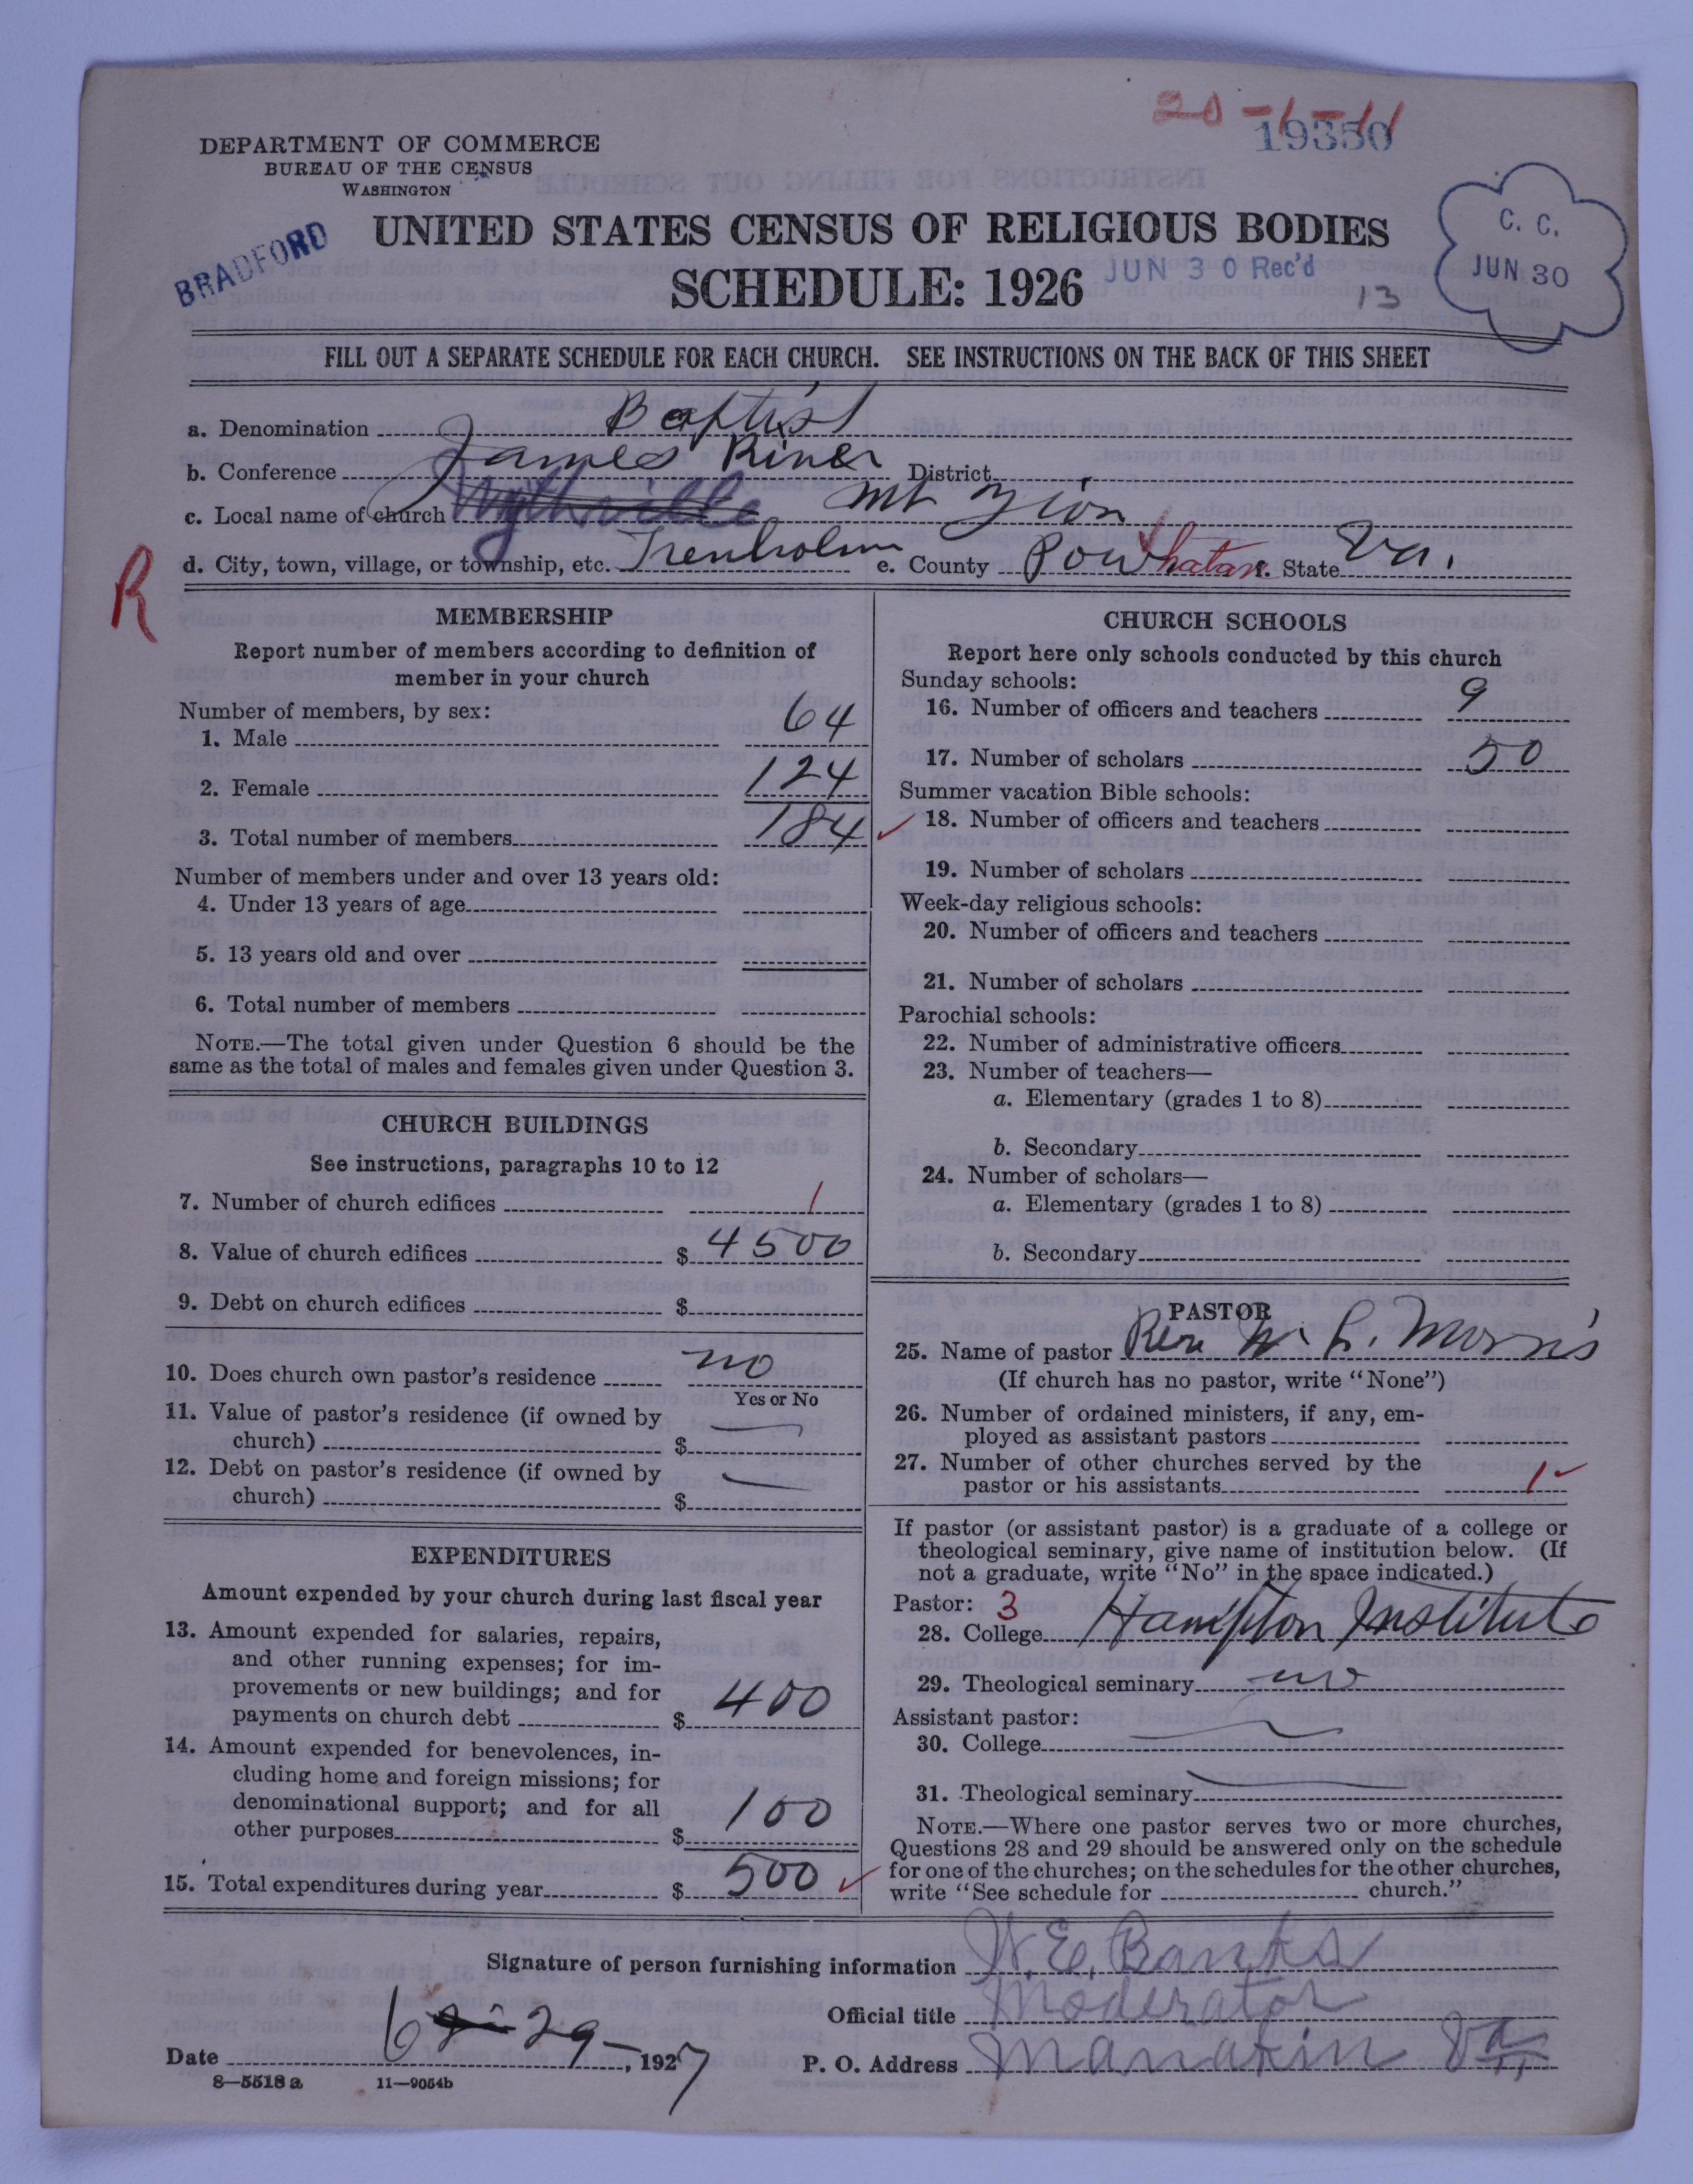 20-1-11
19350
DEPARTMENT OF COMMERCE
BUREAU OF THE CENSUS
WASHINGTON
BRADFORD
UNITED STATES CENSUS OF RELIGIOUS BODIES
SCHEDULE: 1926
JUN 30 Rec'd
13
C. C.
JUN 30
FILL OUT A SEPARATE SCHEDULE FOR EACH CHURCH. SEE INSTRUCTIONS ON THE BACK OF THIS SHEET
a. Denomination Baptist
b. Conference James River District
c. Local name of church Wythville Mt Zion
d. City, town, village, or township, etc. Trenholm e. County Powhatan f. State Va.
R
MEMBERSHIP
Report number of members according to definition of
member in your church
Number of members, by sex:
1. Male 64
2. Female 124
3. Total number of members 184
Number of members under and over 13 years old:
4. Under 13 years of age
5. 13 years old and over
6. Total number of members
NOTE.—The total given under Question 6 should be the
same as the total of males and females given under Question 3.
CHURCH BUILDINGS
See instructions, paragraphs 10 to 12
7. Number of church edifices 1
8. Value of church edifices $ 4500
9. Debt on church edifices $
10. Does church own pastor's residence no
Yes or No
11. Value of pastor's residence (if owned by
church) $ —
12. Debt on pastor's residence (if owned by
church) $ —
EXPENDITURES
Amount expended by your church during last fiscal year
13. Amount expended for salaries, repairs,
and other running expenses; for im-
provements or new buildings; and for
payments on church debt $ 400
14. Amount expended for benevolences, in-
cluding home and foreign missions; for
denominational support; and for all
other purposes $ 100
15. Total expenditures during year $ 500
CHURCH SCHOOLS
Report here only schools conducted by this church
Sunday schools:
16. Number of officers and teachers 9
17. Number of scholars 50
Summer vacation Bible schools:
18. Number of officers and teachers
19. Number of scholars
Week-day religious schools:
20. Number of officers and teachers
21. Number of scholars
Parochial schools:
22. Number of administrative officers
23. Number of teachers—
a. Elementary (grades 1 to 8)
b. Secondary
24. Number of scholars—
a. Elementary (grades 1 to 8)
b. Secondary
PASTOR
25. Name of pastor Rev W. L. Morris
(If church has no pastor, write "None")
26. Number of ordained ministers, if any, em-
ployed as assistant pastors
27. Number of other churches served by the
pastor or his assistants 1
If pastor (or assistant pastor) is a graduate of a college or
theological seminary, give name of institution below. (If
not a graduate, write "No" in the space indicated.)
Pastor: 3
28. College Hampton Institute
29. Theological seminary no
Assistant pastor:
30. College —
31. Theological seminary —
NOTE.—Where one pastor serves two or more churches,
Questions 28 and 29 should be answered only on the schedule
for one of the churches; on the schedules for the other churches,
write "See schedule for church."
Signature of person furnishing information W. E. Banks
Official title Moderator
Date 6 29, 1927 P. O. Address Manakin Va.
8—5518 a 11—9054b